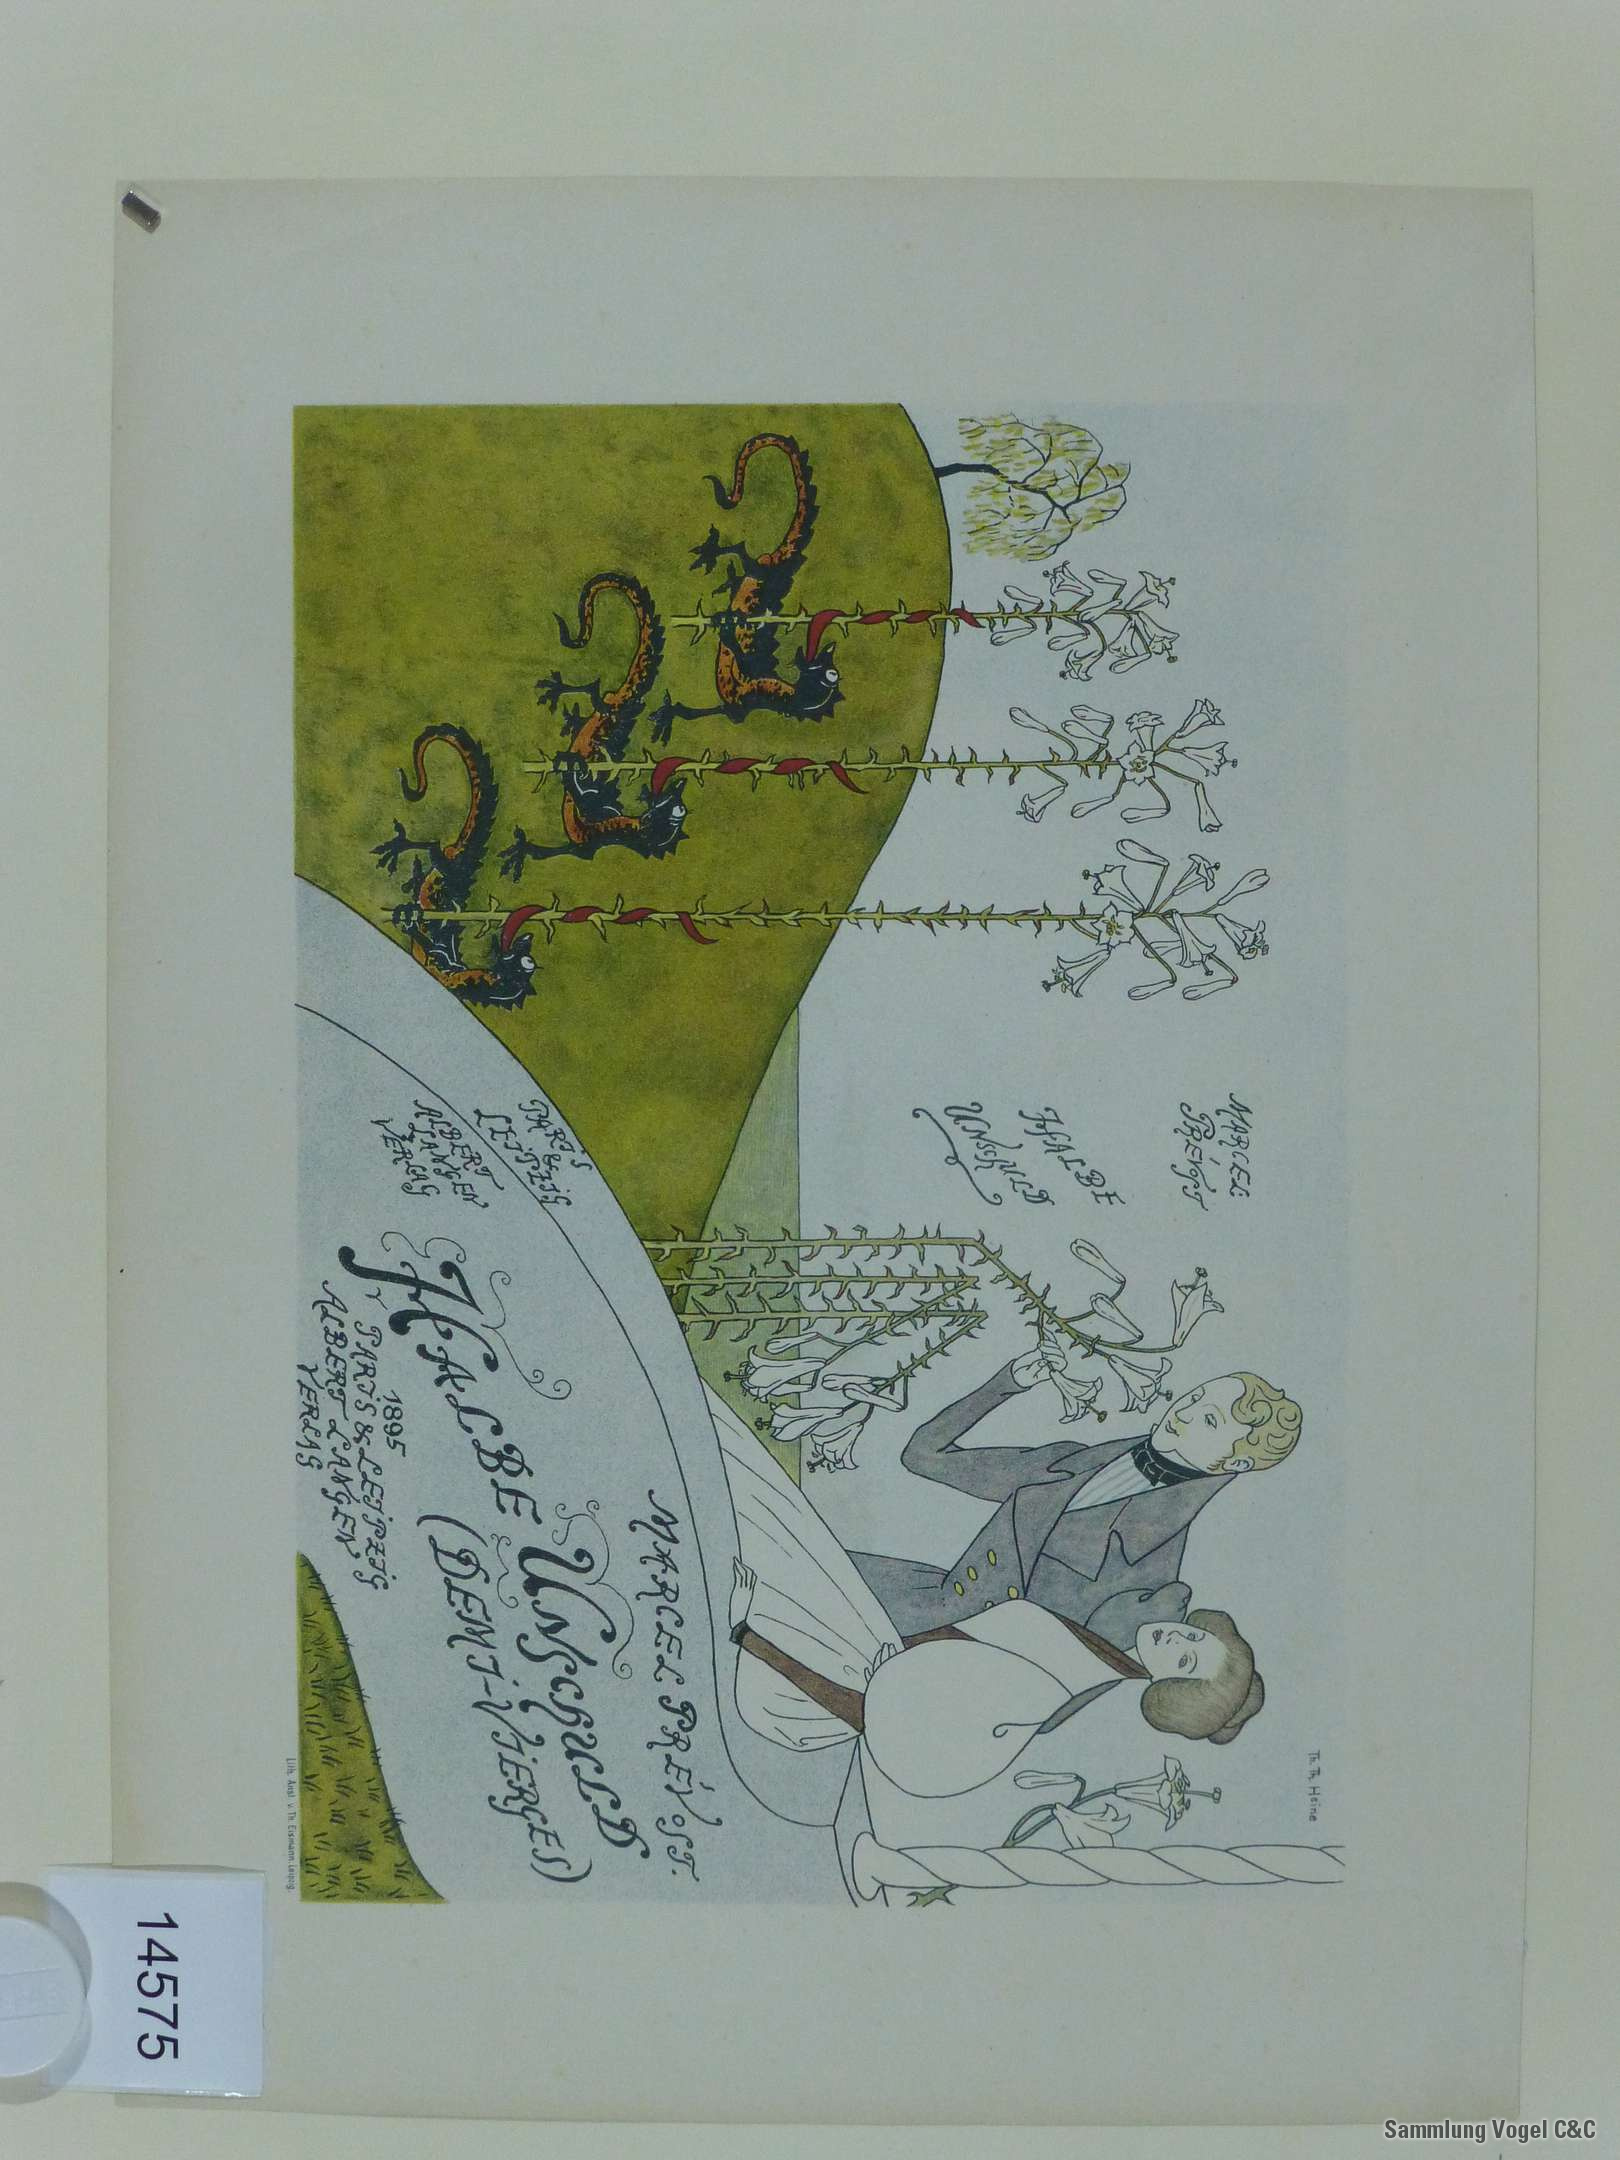 Th. Th. Heine
MARCEL PRÉVOST.
HALBE UNSCHULD
(DEMI-VIERGES)
1895
PARIS & LEIPZIG
ALBERT LANGEN,
VERLAG
MARCEL
PRÉVOST
HALBE
UNSCHULD
PARIS
& LEIPZIG
ALBERT
LANGEN
VERLAG
Lith. Anst. v. Th. Eismann, Leipzig.
14575
Sammlung Vogel C&C